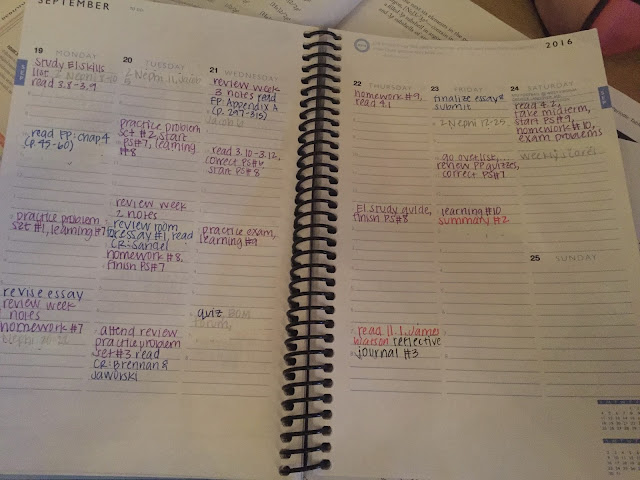 SEPTEMBER
19 MONDAY
Study E1 Skills
list 2 Nephi
read 3.8-3.9
read EP: chap 4
(p. 45-60)
practice problem
set #1, learning #7
revise essay
review week
notes
homework #7
20 TUESDAY
2 Nephi 11,
practice problem
set #2, start
PS#7, learning
#8
review week
2 notes
review room
for essay #1, read
CR: Sandel
homework #8,
finish PS#7
attend review
practice problem
set #3 read
CR: Brennan &
Jaworski
21 WEDNESDAY
review week
3 notes read
EP: Appendix A
(p. 297-315)
Jacob
read 3.10-3.12,
correct PS#6
start PS#8
practice exam,
learning #9
quiz DOM
forum,
2016
22 THURSDAY
homework #9,
read 4.1
E1 study guide,
finish PS#8
read 11.1, James
Watson reflective
journal #3
23 FRIDAY
finalize essay &
submit
2 Nephi 12-25
go over list,
review PP quizzes,
correct PS#7
learning #10
summary #2
24 SATURDAY
read 4.2,
take midterm,
start PS#9,
homework #10,
exam problems
weekly chores
25 SUNDAY
SEP
SEP